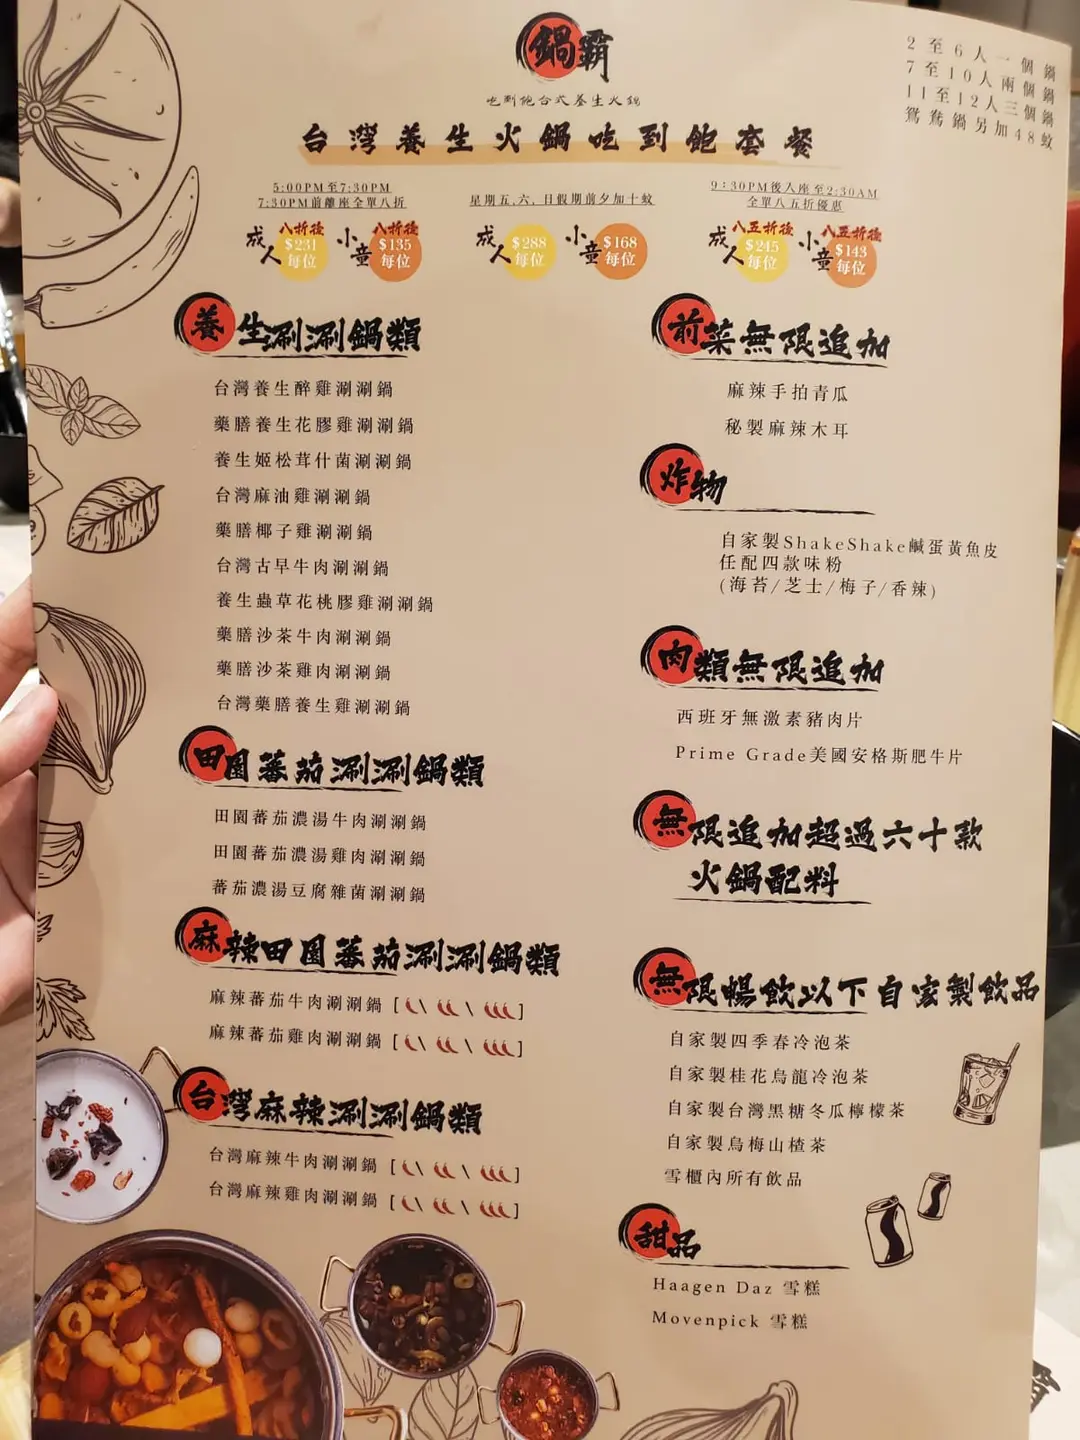 鍋霸
吃到飽台式養生火鍋
台灣養生火鍋吃到飽套餐
2至6人一個鍋
7至10人兩個鍋
11至12人三個鍋
鴛鴦鍋另加48蚊
5:00PM至7:30PM
7:30PM前離座全單八折
成人
八折後
$231
每位
小童
八折後
$135
每位
星期五,六,日假期前夕加十蚊
成人
$288
每位
小童
$168
每位
9:30PM後入座至2:30AM
全單八五折優惠
成人
八五折後
$245
每位
小童
八五折後
$143
每位
養生涮涮鍋類
台灣養生醉雞涮涮鍋
藥膳養生花膠雞涮涮鍋
養生姬松茸什菌涮涮鍋
台灣麻油雞涮涮鍋
藥膳椰子雞涮涮鍋
台灣古早牛肉涮涮鍋
養生蟲草花桃膠雞涮涮鍋
藥膳沙茶牛肉涮涮鍋
藥膳沙茶雞肉涮涮鍋
台灣藥膳養生雞涮涮鍋
田園蕃茄涮涮鍋類
田園蕃茄濃湯牛肉涮涮鍋
田園蕃茄濃湯雞肉涮涮鍋
蕃茄濃湯豆腐雜菌涮涮鍋
麻辣田園蕃茄涮涮鍋類
麻辣蕃茄牛肉涮涮鍋 [ \ \ ]
麻辣蕃茄雞肉涮涮鍋 [ \ \ ]
台灣麻辣涮涮鍋類
台灣麻辣牛肉涮涮鍋 [ \ \ ]
台灣麻辣雞肉涮涮鍋 [ \ \ ]
前菜無限追加
麻辣手拍青瓜
秘製麻辣木耳
炸物
自家製ShakeShake鹹蛋黃魚皮
任配四款味粉
(海苔/芝士/梅子/香辣)
肉類無限追加
西班牙無激素豬肉片
Prime Grade美國安格斯肥牛片
無限追加超過六十款
火鍋配料
無限暢飲以下自家製飲品
自家製四季春冷泡茶
自家製桂花烏龍冷泡茶
自家製台灣黑糖冬瓜檸檬茶
自家製烏梅山楂茶
雪櫃內所有飲品
甜品
Haagen Daz 雪糕
Movenpick 雪糕